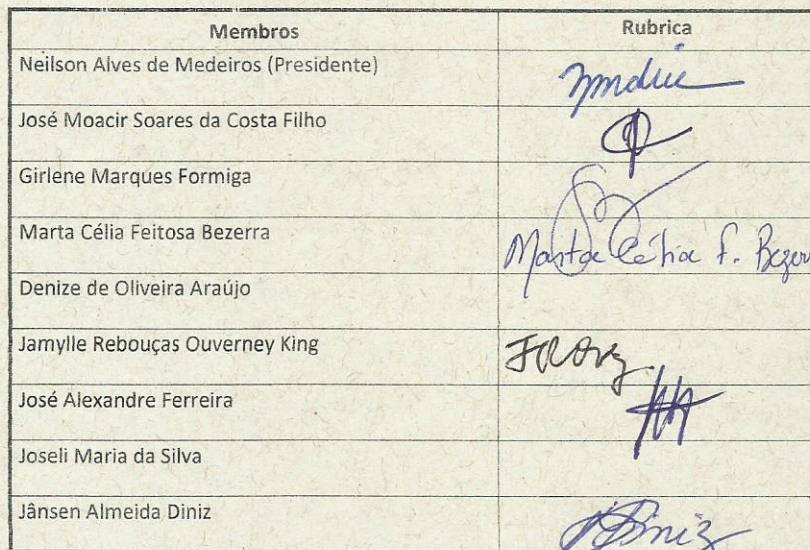 Membros Rubrica
Neilson Alves de Medeiros (Presidente)
José Moacir Soares da Costa Filho
Girlene Marques Formiga
Marta Célia Feitosa Bezerra Marta Célia F. Bezer
Denize de Oliveira Araújo
Jamylle Rebouças Ouverney King
José Alexandre Ferreira
Joseli Maria da Silva
Jânsen Almeida Diniz Diniz